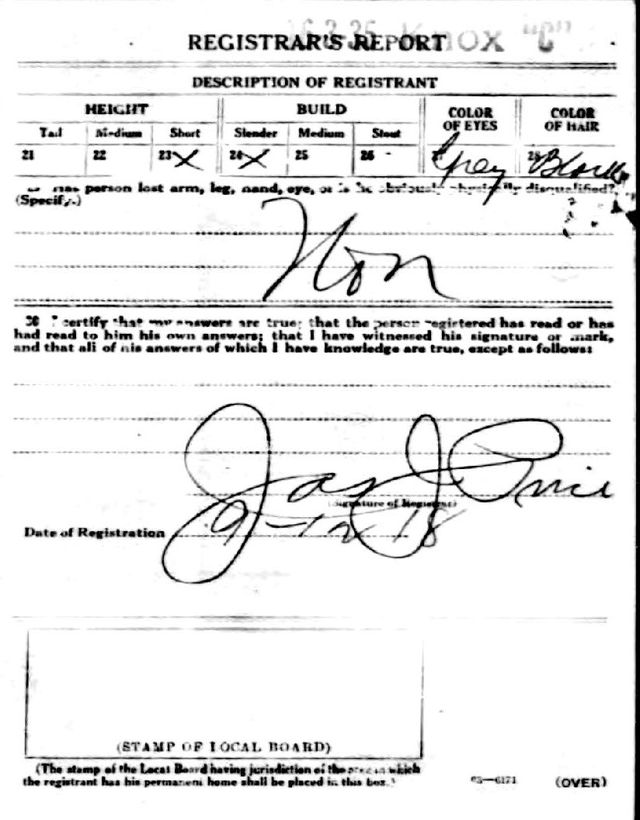 16-3-35 Knox "C"
REGISTRAR'S REPORT
DESCRIPTION OF REGISTRANT
HEIGHT BUILD COLOR OF EYES COLOR OF HAIR
Tall Medium Short Slender Medium Stout
21 22 23 X 24 X 25 26 27 Gray 28 Black
29 Has person lost arm, leg, hand, eye, or is he obviously physically disqualified?
(Specify.)
Non
30 I certify that my answers are true; that the person registered has read or has
had read to him his own answers; that I have witnessed his signature or mark,
and that all of his answers of which I have knowledge are true, except as follows:
Jas J
(Signature of Registrar)
Date of Registration 9-12 18
(STAMP OF LOCAL BOARD)
(The stamp of the Local Board having jurisdiction of the area in which
the registrant has his permanent home shall be placed in this box.)
03—6171 (OVER)